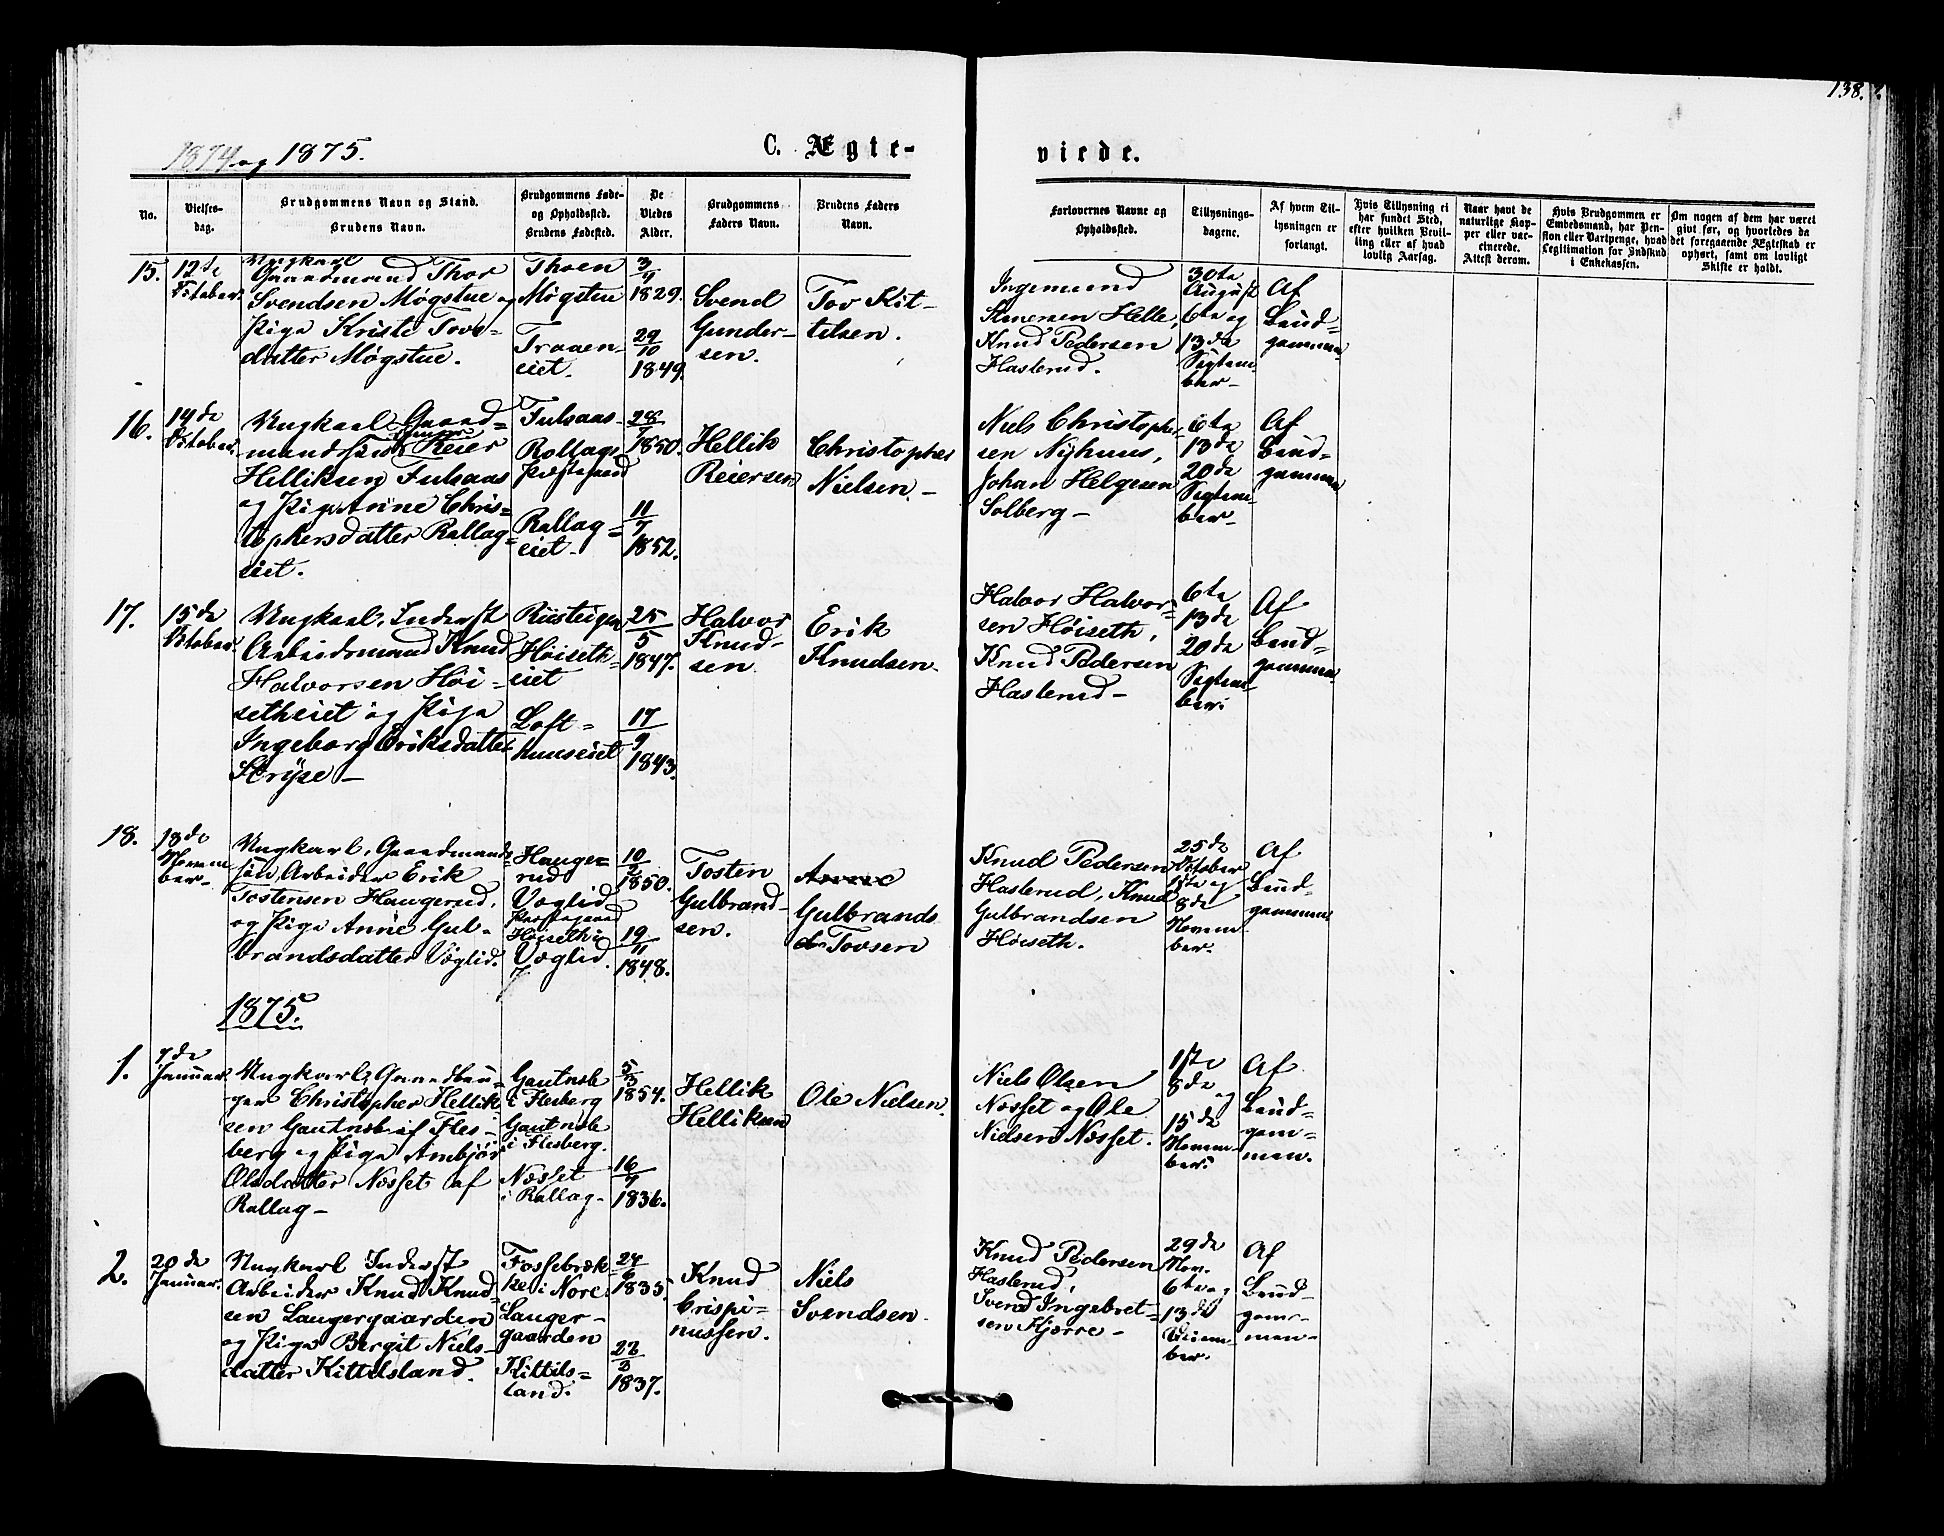 138.
1874 og 1875.
C. Ægte-
viede.
No.
Vielses-
dag.
Brudgommens Navn og Stand.
Brudens Navn.
Brudgommens Føde-
og Opholdssted.
Brudens Fødested.
De
Viedes
Alder.
Brudgommens
Faders Navn.
Brudens Faders
Navn.
Forlovernes Navne og
Opholdssted.
Tillysnings-
dagene.
Af hvem Til-
lysningen er
forlangt.
Hvis Tillysning ei
har fundet Sted,
efter hvilken Bevil-
ling eller af hvad
lovlig Aarsag.
Naar havt de
naturlige Kop-
per eller vac-
cinerede.
Attest derom.
Hvis Brudgommen er
Embedsmand, har Pen-
sion eller Vartpenge, hvad
Legitimation for Indskud
i Enkekassen.
Om nogen af dem har været
givt før, og hvorledes da
det foregaaende Ægteskab er
ophørt, samt om lovligt
Skifte er holdt.
15.
12te
October.
Ungkarl
Gaardmand Thor
Svendsen Møgstue og
Pige Kristi Tovs-
datter Møgstue.
Thoen
Møgstue
Traaen-
eiet.
3/9
1829.
29/10
1849.
Svend
Gunder-
sen.
Tov Kit-
telsen.
Ingemund
Steensen Helle,
Knud Pedersen
Haslerud.
30te
August
6te og
13de
Septem-
ber-
Af
Brud-
gommen
16.
14de
October.
Ungkarl Gaard=
mandssøn Reier
Helliksen Fulsaas
og Pige Anne Chris=
tophersdatter Rollag=
eiet.
Fulsaas
Rollags
Præstegaard
Rollag=
eiet-
28/7
1850.
11/7
1852.
Hellik
Reiersen
Christopher
Nielsen.-
Niels Christopher-
sen Nyhuus,
Johan Helgesen
Solberg-
6te
13de
20de
Septem-
ber-
Af
Brud-
gommen
17.
15de
October.
Ungkarl, Inderst
Arbeidsmand Knud
Halvorsen Høi-
setheiet og Pige
Ingeborg Eriksdatter
Stryse-
Høiseth-
eiet
Loft=
huuseiet
25/5
1847.
17/9
1843.
Halvor
Knud-
sen.
Erik
Knudsen.
Halvor Halvor-
sen Høiseth,
Knud Pedersen
Haslerud-
6te
13de
20de
Septem-
ber.
Af
Brud-
gommen.
18.
18de
Novem-
ber-
Ungkarl, Gaardmands-
søn, Arbeider Erik
Tostensen Haugerud,
og Pige Anne Gul-
brandsdatter Væglid.
Hauge-
rud
Væglid
Præstegaard
Høiseth i
Væglid
10/2
1850.
19/11
1848.
Tosten
Gulbrand-
sen.
Gulbrands
Tovsen
Knud Pedersen
Haslerud, Knud
Gulbrandsen
Høiseth.
25de
October
1ste og
8de
Novem-
ber.
Af
Brud-
gommen
1875.
1.
7de
Januar.
Ungkarl, Gaardbru-
ger Christopher Hellik-
sen Gautnsb af Fles-
berg og Pige Ambjør
Olsdatter Næsset af
Rollag-
Gautnsb
i Flesberg
Gautnsb
i Flesberg.
Næsset
i Rollag-
5/3
1854.
16/7
1836.
Hellik
Helliksen
Ole Nielsen.
Niels Olsen
Næsset og Ole
Nielsen Næsset.
1ste
8de og
15de
Novem-
ber.
Af
Brud-
gom-
men.
2.
20de
Januar.
Ungkarl Inderst
Arbeider Knud Knud-
sen Langergaarden
og Pige Bergit Niels-
datter Kittelsland.
Fossebræk-
ke i Nore.
Langer-
gaarden
Kittils-
land.
24/6
1835.
22/2
1837.
Knud
Crispi-
nussen.
Niels
Svendsen.
Knud Pedersen
Haslerud,
Svend Ingebret-
sen Kjerre-
29de
Nov.
6te og
13de
Decem-
ber.
Af
Brud-
gom-
men-